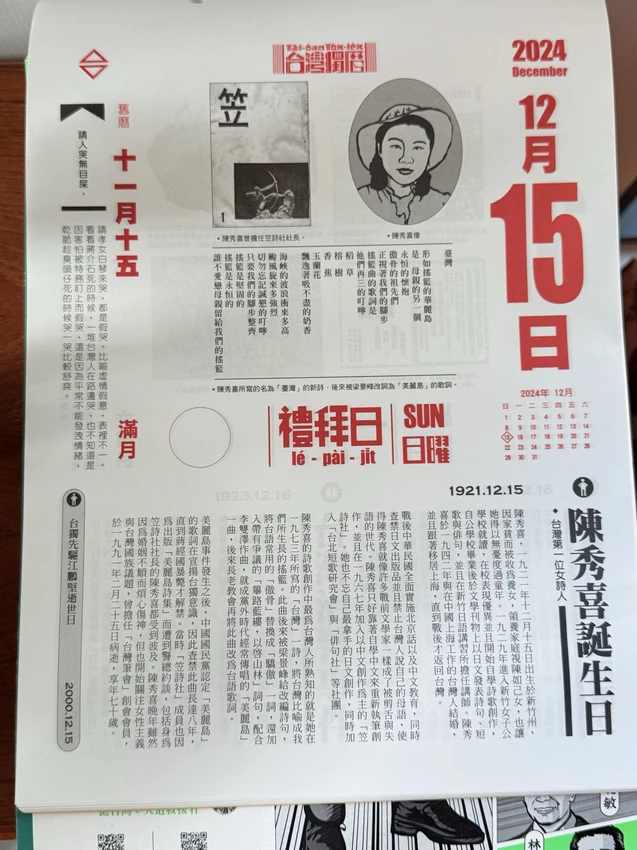 2024
December
12月
15
日
Tâi-oân To̍k-le̍k
台灣獨曆
笠
1
•陳秀喜曾擔任笠詩社社長。
•陳秀喜像
舊曆
十一月十五
滿月
請人哭無目屎。
請孝女白琴來哭，都是假哭。比喻虛情假意，表裡不一。
看看蔣介石死的時候，一堆台灣人在路邊哭，也不知道是
因害怕被特務盯上而假哭，還是因為平常不能發洩情緒，
乾脆趁臭頭仔死的時候哭一哭比較舒爽。
臺灣
形如搖籃的華麗島
是 母親的另一個
永恒的懷抱
傲骨的祖先們
正視著我們的腳步
搖籃曲的歌詞是
他們再三的叮嚀
稻草
榕樹
香蕉
玉蘭花
飄逸著吸不盡的奶香
海峽的波浪衝來多高
颱風旋來多強烈
切勿忘記誠懇的叮嚀
只要我們的腳步整齊
搖籃是堅固的
搖籃是永恒的
誰不愛戀母親留給我們的搖籃
•陳秀喜所寫的名為「臺灣」的新詩，後來被梁景峰改詞為「美麗島」的歌詞。
禮拜日
lé - pài - ji̍t
SUN
日曜
2024年 12月
日 一 二 三 四 五 六
1 2 3 4 5 6 7
8 9 10 11 12 13 14
15 16 17 18 19 20 21
22 23 24 25 26 27 28
29 30 31
1921.12.15
陳秀喜誕生日
◆台灣第一位女詩人
陳秀喜，一九二一年十二月十五日出生於新竹州，
因家貧而被收為養女，領養家庭視陳如己女，也讓
她得以無憂度過童年。一九二九年進入新竹女子公
學校就讀，在校表現優異並且開始日學詩歌創作，
自公學校畢業後於文學刊物上以日文發表詩句、短
歌與俳句，並且在新竹日語講習所擔任講師。陳秀
喜於一九四二年與在中國上海工作的台灣人結婚，
並且跟著移居上海，直到戰後才返回台灣。
戰後中華民國全面實施北京話以及中文教育，同時
查禁日文出版品並且禁止台灣人說自己的母語，使
得陳秀喜就像許多戰前文學家一樣成了被剪舌與失
語的世代。陳秀喜只好靠著自學中文來重新執筆創
作，並且在一九六七年加入以中文創作為主的「笠
詩社」，她也不忘自己最拿手的日文創作，同時加
入「台北短歌研究會」與「俳句社」等社團。
陳秀喜的詩歌創作中最為台灣人所熟知的就是她在
一九七三年所寫的「台灣」詩，將台灣比喻成我
們所生長的搖籃，此曲後來被梁景峰給改編詩句，
將台語常用的「傲骨」替換成「驕傲」一詞，還加
入帶有爭議的「篳路藍縷，以啓山林」詞句，配合
李雙澤作曲，就成黨外時代經常傳唱的「美麗島」
一曲，後來長老教會再將此曲改為台語歌詞。
美麗島事件發生之後，中國國民黨認定「美麗島」
的歌詞在宣揚台獨意識，因此查禁此曲長達八年，
直到蔣經國暴斃才解禁。當時「笠詩社」成員也因
為出版「美麗島詩集」而遭到警總約談，包括身為
笠詩社社長的陳秀喜都受到波及。陳秀喜晚年雖然
因為婚姻不順而煩心傷神，但也開始關注女性主義
與台灣國族議題，曾擔任「台灣筆會」創會會員，
於一九九一年二月二十五日病逝，享年七十歲。
台獨先驅江鵬堅逝世日
2000.12.15
1923.12.16
敏
林